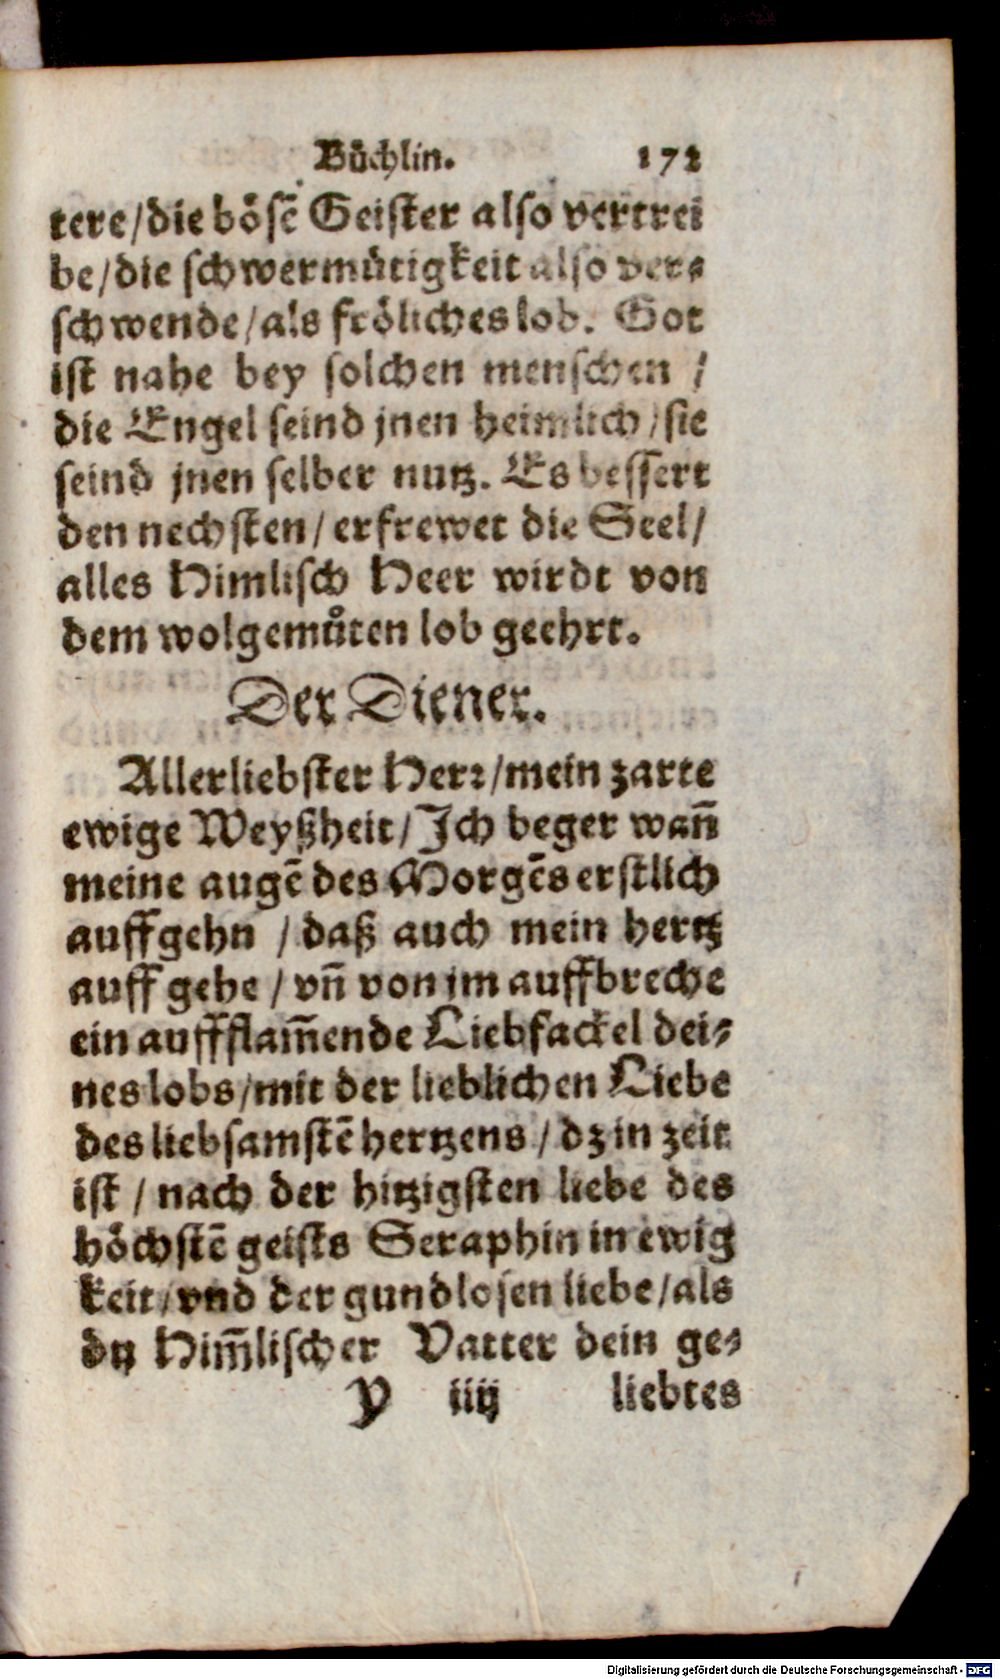 Bůchlin. 172
tere/die bösẽ Geister also vertrei
be/die schwermütigkeit also ver⸗
schwende/als fröliches lob. Got
ist nahe bey solchen menschen /
die Engel seind jnen heimlich/sie
seind jnen selber nutz. Es bessert
den nechsten/erfrewet die Seel/
alles Himlisch Heer wirdt von
dem wolgemůten lob geehrt.
Der Diener.
Allerliebster Herr/mein zarte
ewige Weyßheit/Ich beger wañ
meine augẽ des Morgẽs erstlich
auffgehn /daß auch mein hertz
auff gehe / vñ von im auffbreche
ein aufflam̃ende Liebfackel dei⸗
nes lobs/mit der lieblichen Liebe
des liebsamstẽ hertzens/dz in zeit
ist / nach der hitzigsten liebe des
höchstẽ geists Seraphin in ewig
keit/vnd der gundlosen liebe/als
dtz Him̃lischer Vatter dein ge⸗
Y iiij liebtes
Digitalisierung gefördert durch die Deutsche Forschungsgemeinschaft - DFG